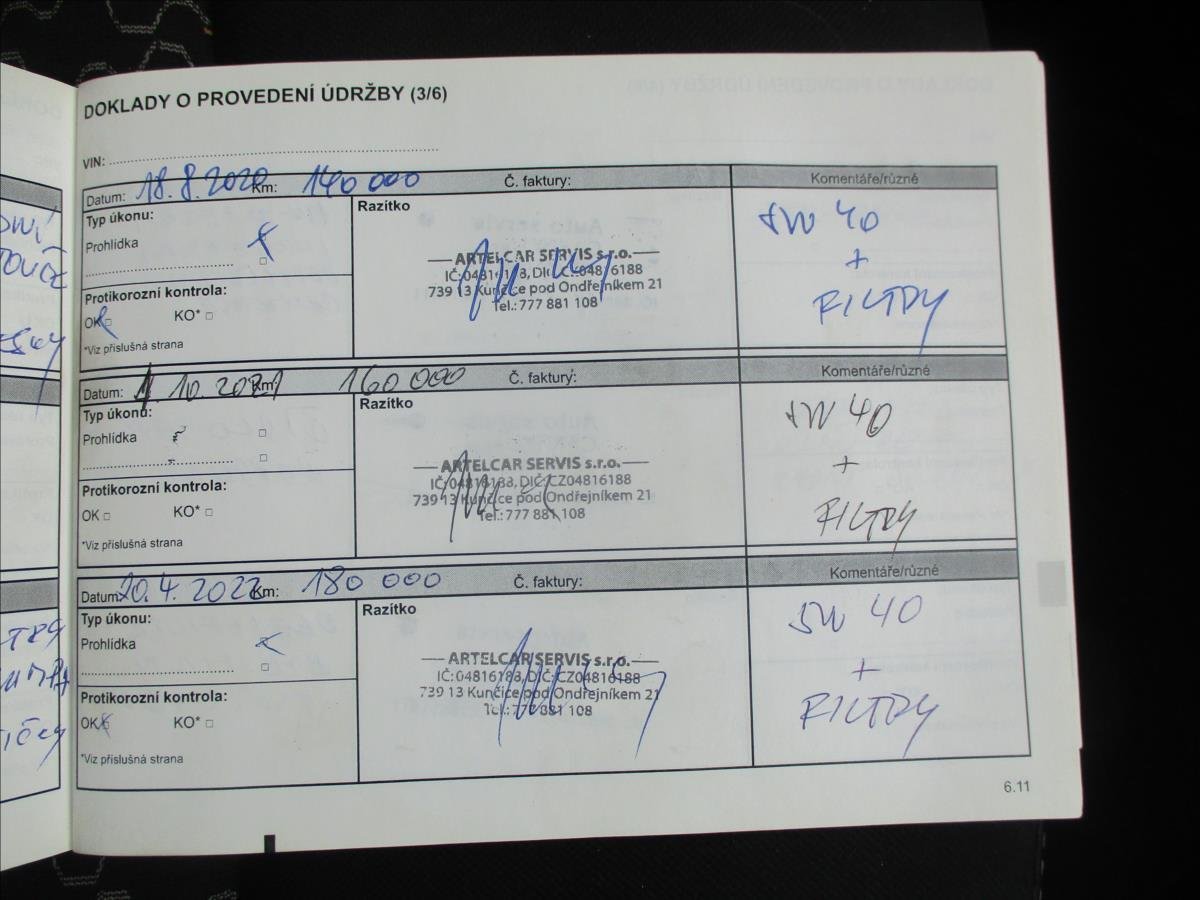 DOKLADY O PROVEDENÍ ÚDRŽBY (3/6)
VIN:
Datum: 18.8.2020 Km: 140 000 Č. faktury: Komentáře/různé
Typ úkonu:
Prohlídka
Protikorozní kontrola:
OK KO*
*Viz příslušná strana
Razítko
ARTELCAR SERVIS s.r.o.
IČ:04816188, DIČ:CZ04816188
739 13 Kunčice pod Ondřejníkem 21
Tel.:777 881 108
5W 40
+
FILTRY
Datum: 1.10.2021 Km: 160 000 Č. faktury: Komentáře/různé
Typ úkonu:
Prohlídka
Protikorozní kontrola:
OK KO*
*Viz příslušná strana
Razítko
ARTELCAR SERVIS s.r.o.
IČ:04816188, DIČ:CZ04816188
739 13 Kunčice pod Ondřejníkem 21
Tel.:777 881 108
5W 40
+
FILTRY
Datum: 20.4.2022 Km: 180 000 Č. faktury: Komentáře/různé
Typ úkonu:
Prohlídka
Protikorozní kontrola:
OK KO*
*Viz příslušná strana
Razítko
ARTELCAR SERVIS s.r.o.
IČ:04816188, DIČ:CZ04816188
739 13 Kunčice pod Ondřejníkem 21
Tel.:777 881 108
5W 40
+
FILTRY
6.11